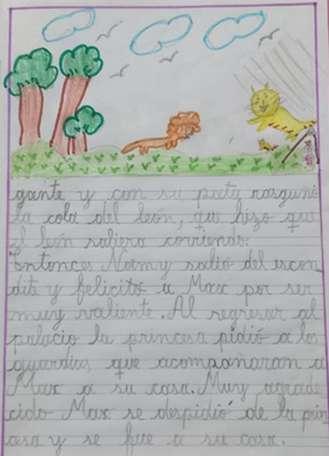 gante y con su pata rasguñó
la cola del león, qu hizo que
el león saliera corriendo.
Entonces Naomy salió del escon
dite y felicitó a Max por ser
muy valiente. Al regresar al
palacio la princesa pidió a los
guardias que acompañaran a
Max a su casa. Muy agrade
cido Max se despidió de la prin
cesa y se fue a su casa.